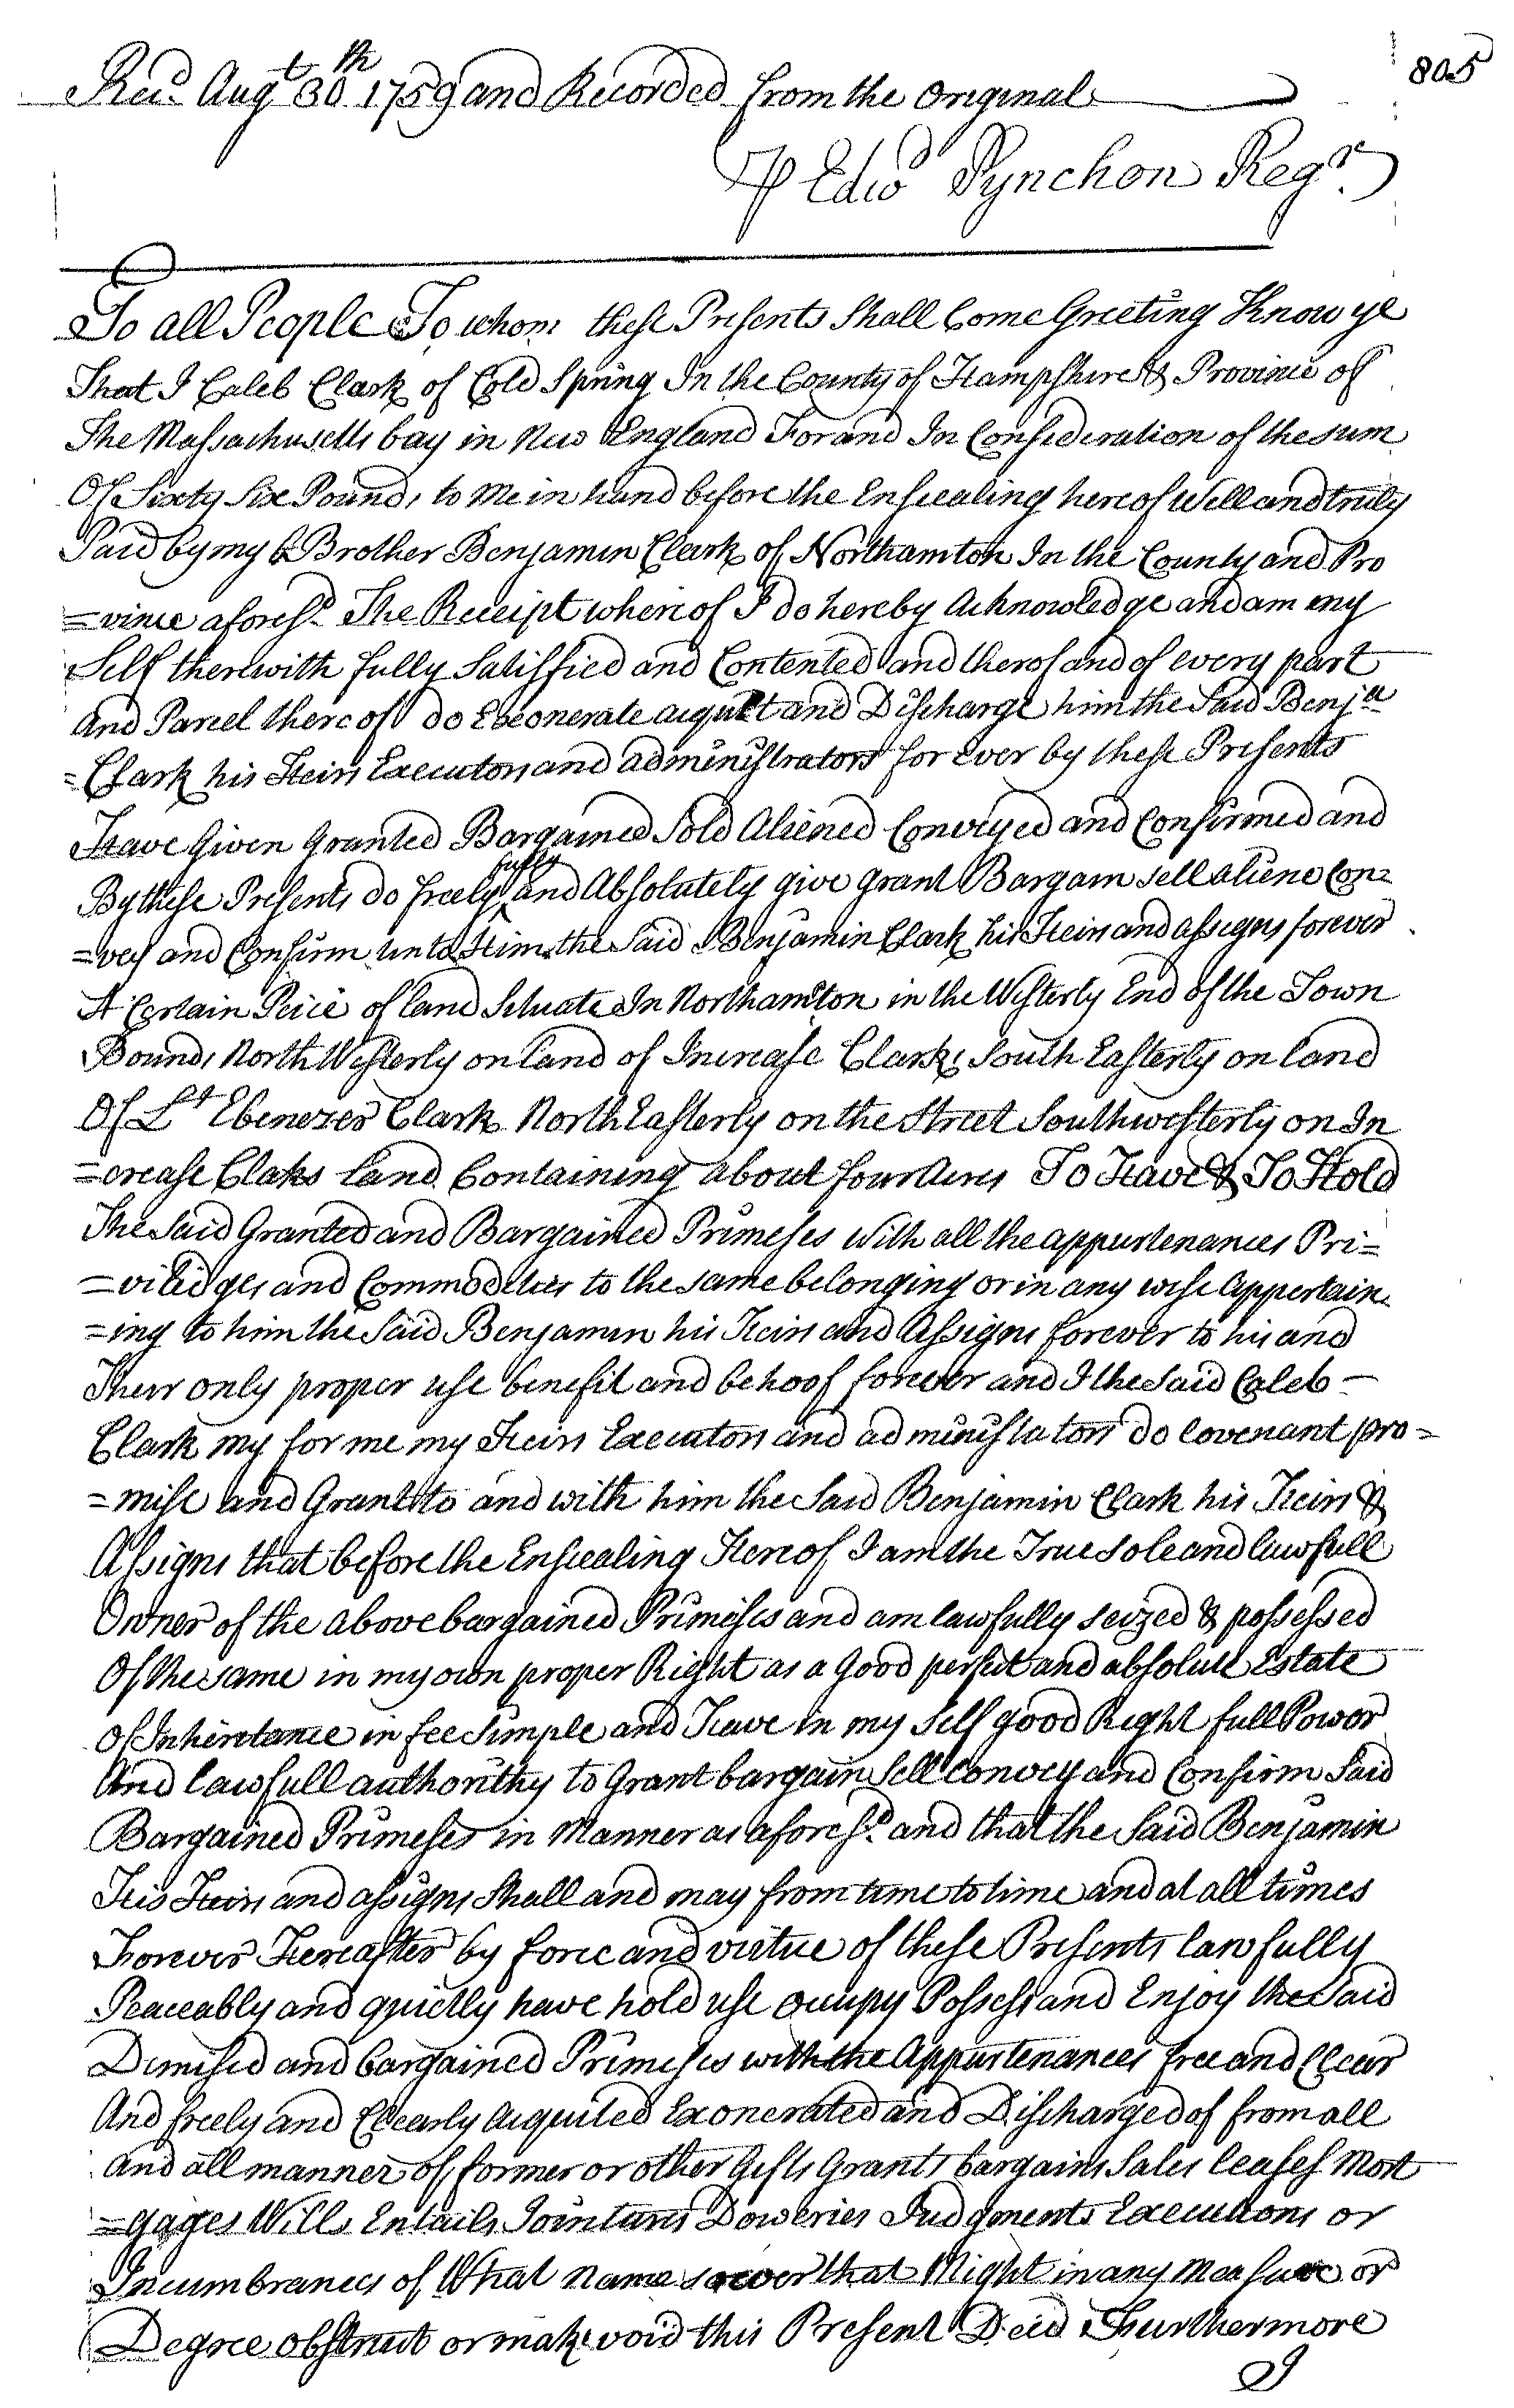 805
Recd. Augt 30th 1759 and Recorded from the Original
P Edwd Pynchon Regr.
To all People To whom these Presents Shall Come Greeting Know ye
That I Caleb Clark of Cold Spring In the County of Hampshire & Province of
The Massachusetts bay in New England For and In Consideration of the sum
Of Sixty Six Pounds to me in hand before the Ensealing hereof Well and truly
Paid by my Brother Benjamin Clark of Northamton In the County and Pro
=vince aforesd. The Receipt whereof I do hereby Acknowledge and am my
Self therewith fully Satisfied and Contented and therof and of every part
And Parcel thereof do Exonerate acquit and Discharge him the Said Benja
=Clark his Heirs Executors and administrators for Ever by these Presents
Have Given Granted Bargained Sold Aliened Conveyed and Confirmed and
By these Presents do freely fully and Absolutely give grant Bargain sell aliene Con=
=vey and Confirm unto Him the Said Benjamin Clark his Heirs and assigns forever
A Certain Peice of land Situate In Northamton in the Westerly End of the Town
Bounds North Westerly on land of Increase Clarks South Easterly on land
Of Lt Ebenezer Clark North Easterly on the Street Southwesterly on In
=crease Claks Land Containing about four Acres To Have & To Hold
The Said Granted and Bargained Primeses With all the appurtenances Pri=
=viledges and Commodities to the same belonging or in any wise Appertain
=ing to him the Said Benjamin his Heirs and Assigns forever to his and
Their only proper use benefit and behoof forever and I the Said Caleb
Clark my for me my Heirs Executors and administators do Covenant pro=
=mise and Grant to and with him the Said Benjamin Clark his Heirs &
Assigns that before the Ensealing Hereof I am the True sole and lawfull
Owner of the above bargained Primeses and am lawfully seized & possessed
Of the same in my own proper Right as a Good perfect and absolute Estate
Of Inheritance in fee simple and Have in my Self good Right full Power
And lawfull authorithy to Grant bargain Sell Convey and Confirm Said
Bargained Primeses in Manner as aforesd. and that the Said Benjamin
His Heirs and assigns Shall and may from time to time and at all times
Forever Hereafter by force and virtue of these Presents lawfully
Peaceably and quietly have hold use occupy Possess and Enjoy the Said
Demised and bargained Primeses with the Appurtenances free and Clear
And freely and Clearly acquited Exonerated and Discharged of from all
And all manner of former or other Gifts Grants bargains Sales leases Mort
=gages Wills Entails Jointures Doweries Judgments Executions or
Incumbrances of What Name soever that Might in any Measure or
Degree obstruct or make void this Present Deed Furthermore
I